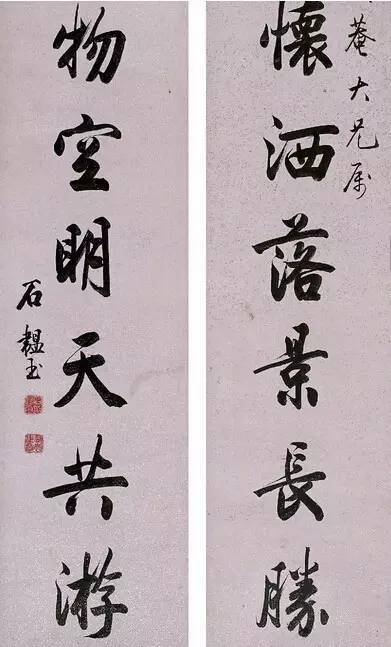 菴大兄属
懷洒落景長勝
物空明天共游
石韞玉